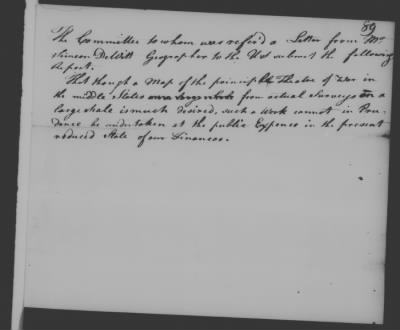 89
The Committee to whom was refer'd a Letter from Mr
Simeon DeWitt Geographer to the U.S. submit the following
Report.
That though a Map of the principal Theatre of War in
the middle States from actual Surveys on a
large scale is much desired, such a Work cannot in Pru-
dence be undertaken at the public Expence in the present
reduced State of our Finances.